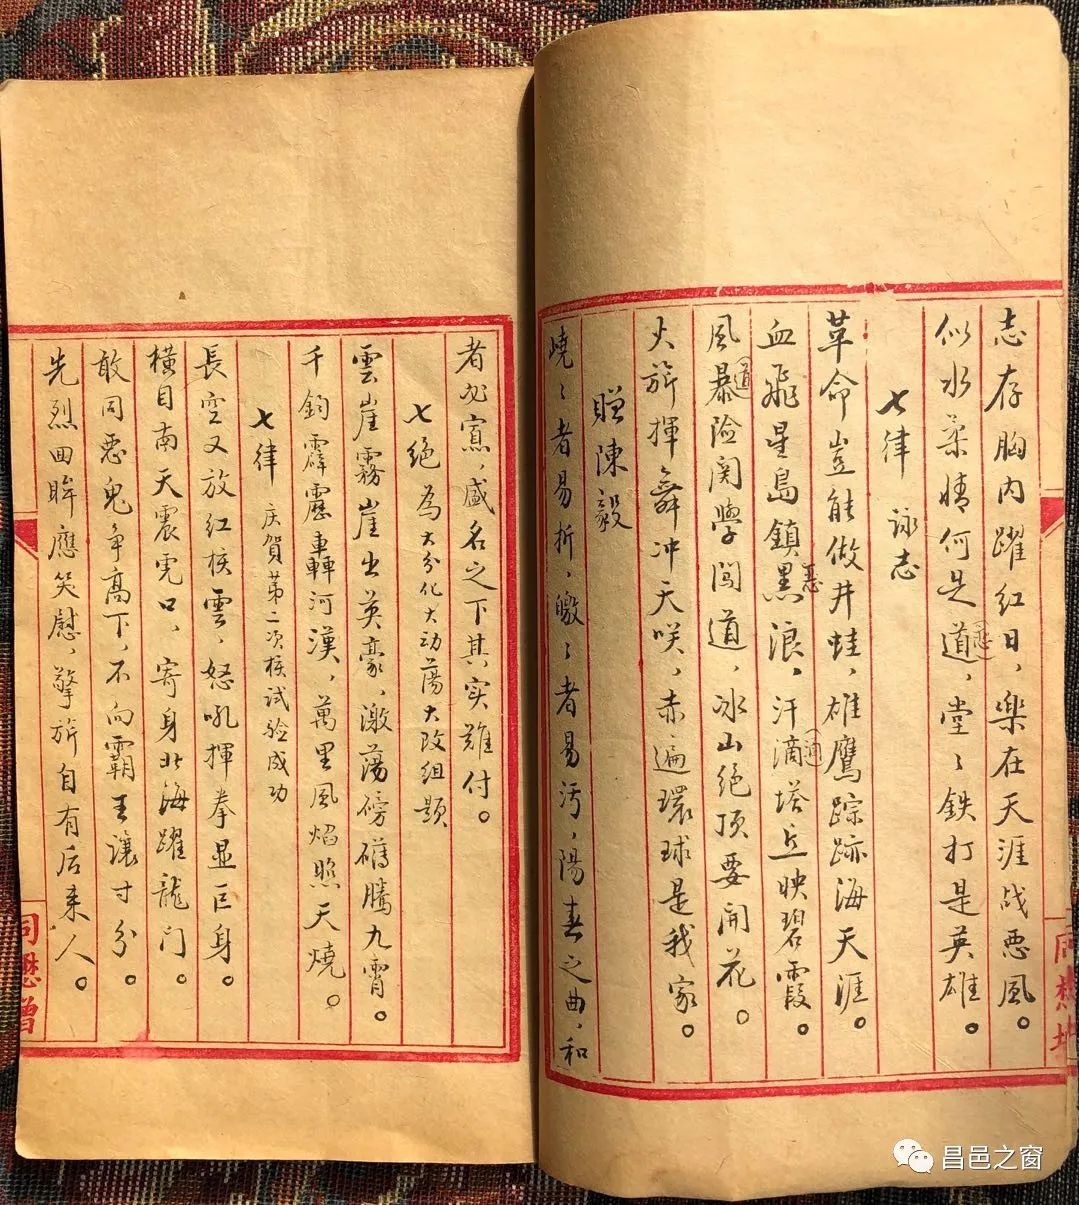 志存胸内躍红日，樂在天涯战惡風。
似水柔情何是道，堂〻鉄打是英雄。
七律 詠志
革命豈能做井蛙，雄鷹踪跡海天涯。
血飛星島鎮黑浪，汗滴塔丘映碧霞。
風暴險関學闯道，冰山绝顶要開花。
火旂揮舞冲天咲，赤遍環球是我家。
贈陳毅
嶢〻者易折，皦〻者易污，陽春之曲，和
者必寡，盛名之下其实難付。
七绝 為大分化大动蕩大改组题
雲崖霧崖出英豪，激蕩磅礴騰九霄。
千鈞霹靂轟河漢，萬里風焰照天燒。
七律 庆賀第二次核试验成功
長空又放红核雲，怒吼揮拳显巨身。
横目南天震虎口，寄身北海躍龍门。
敢同惡鬼争高下，不向霸王讓寸分。
先烈回眸應笑慰，擎旂自有后来人。
同懋增
昌邑之窗